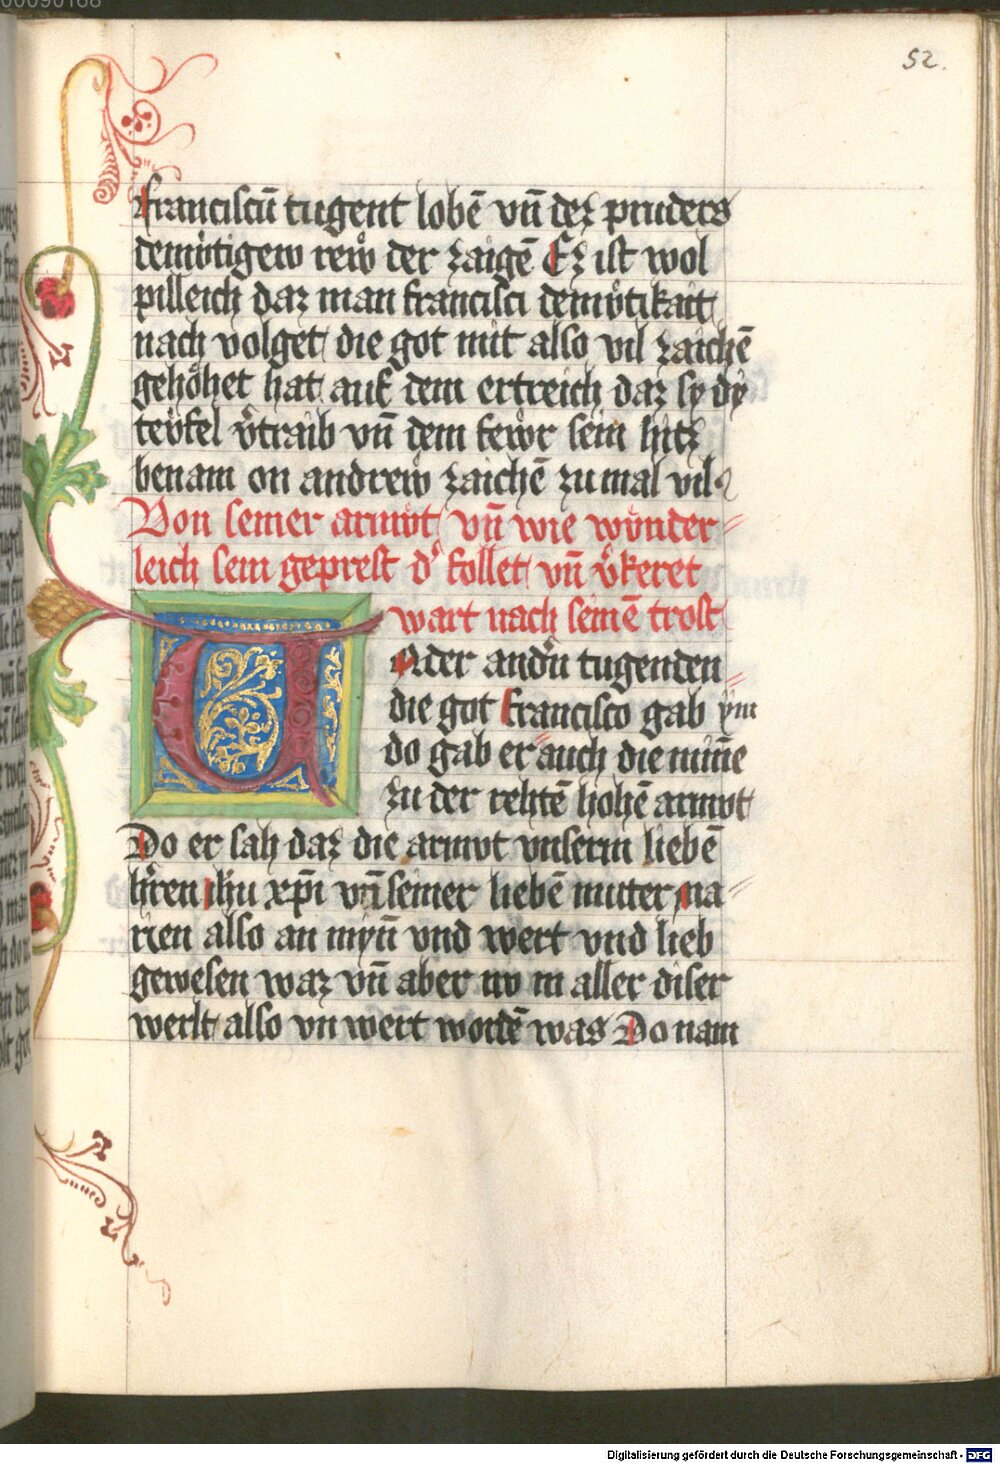 52.
Franciscū tugent lobē vn̄ dez pruders
demv̊tigew reẘ der zaigē Ez ist wol
pilleich daz man francisci demv̊tikait
nach volget die got mit also vil zaichē
gehöhet hat auf dem ertreich daz sy dy
tev̊fel v̊traib vn̄ dem feẘr sein hitz
benam on andreẘ zaichē zu mal vil
Von seiner armv̊t vn̄ wie wunder=
leich sein geprest d' follet vn̄ v̊keret
wart nach seinē trost
Under andn̄ tugenden
die got francisco gab ym
do gab er auch die minē
zu der rehtē hohē armvt
Do er sah daz die armvt vnserm liebē
hr̄en ihū xp̄i vn̄ seiner liebē muter ma=
rien also an myn̄ vnd wert vnd lieb
gewesen waz vn̄ aber nv in aller diser
werlt also vn wert wordē was Do nam
Digitalisierung gefördert durch die Deutsche Forschungsgemeinschaft - DFG